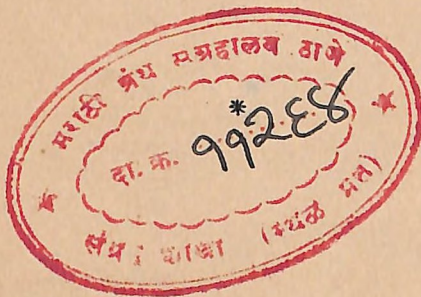 मराठी ग्रंथ संग्रहालय ठाणे
*
दा. क्र. ११२६४
शाखा (स्थळ प्रत)